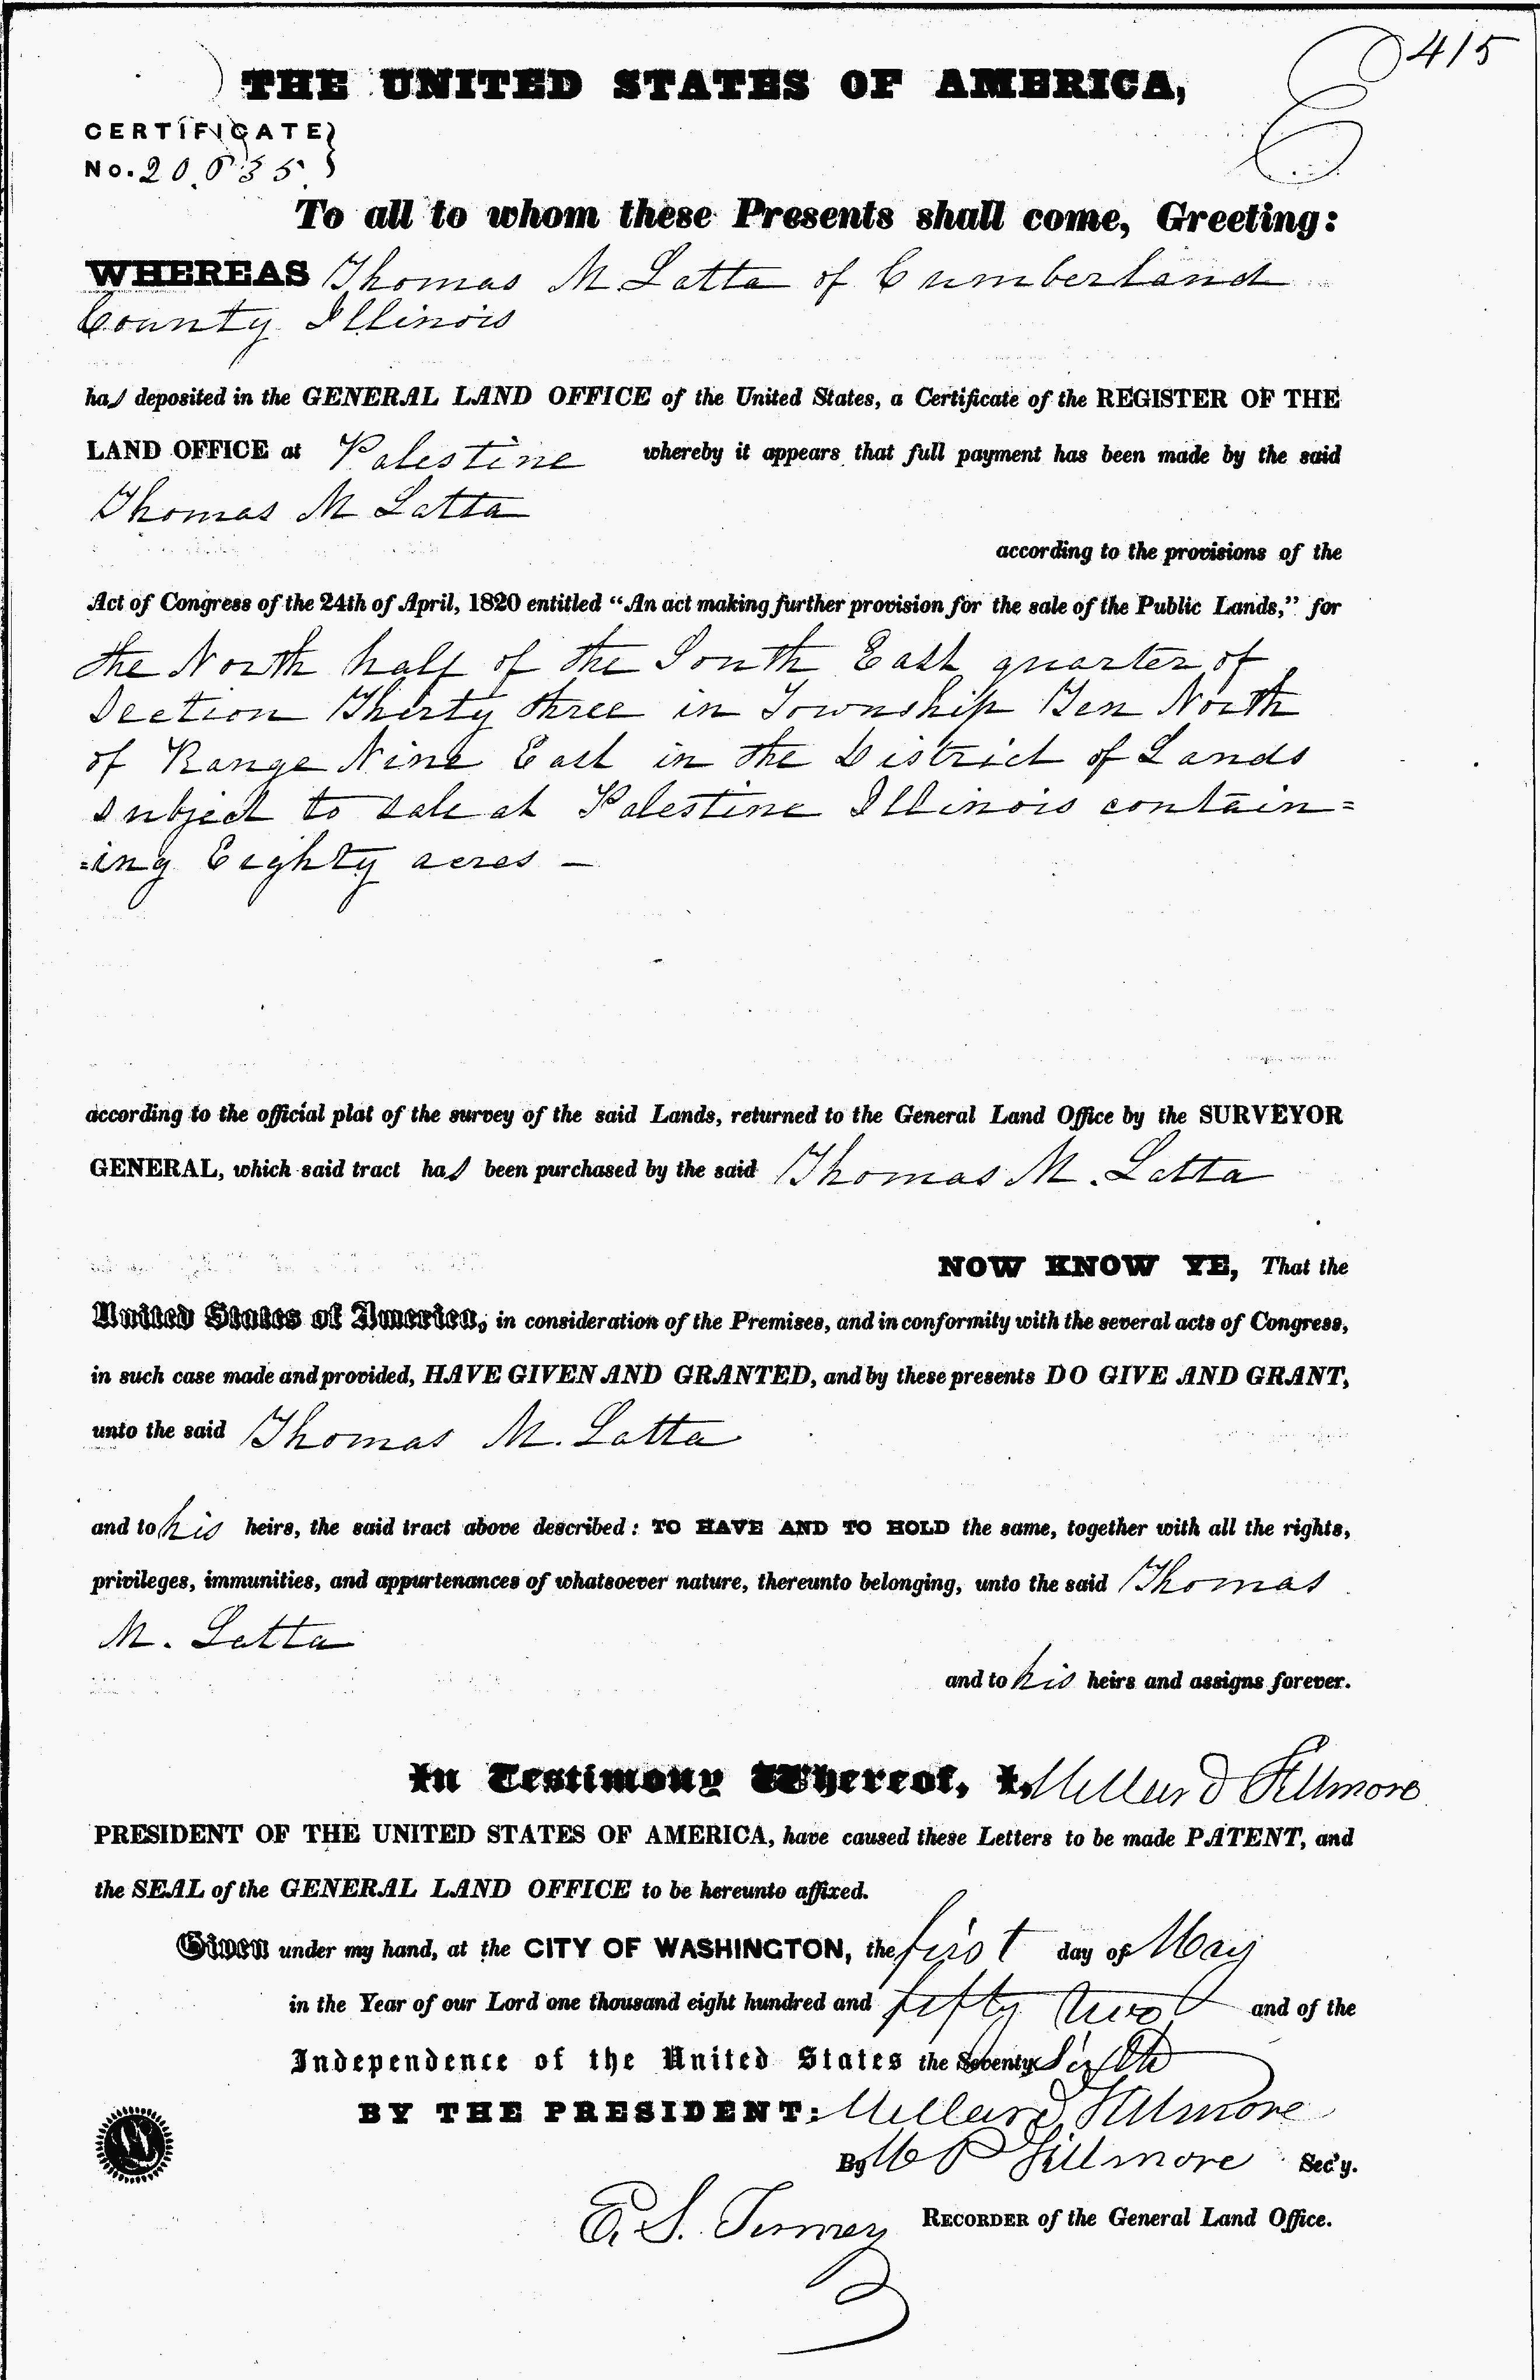 415
THE UNITED STATES OF AMERICA,
CERTIFICATE
No.
To all to whom these Presents shall come, Greeting:
WHEREAS Thomas M Latta of Cumberland
County Illinois
has deposited in the GENERAL LAND OFFICE of the United States, a Certificate of the REGISTER OF THE
LAND OFFICE at Palestine whereby it appears that full payment has been made by the said
Thomas M Latta
according to the provisions of the
Act of Congress of the 24th of April, 1820 entitled “An act making further provision for the sale of the Public Lands,” for
the North half of the South East quarter of
Section Thirty three in Township Ten North
of Range Nine East in the District of Lands
subject to sale at Palestine Illinois contain=
=ing Eighty acres —
according to the official plat of the survey of the said Lands, returned to the General Land Office by the SURVEYOR
GENERAL, which said tract has been purchased by the said Thomas M. Latta
NOW KNOW YE, That the
United States of America, in consideration of the Premises, and in conformity with the several acts of Congress,
in such case made and provided, HAVE GIVEN AND GRANTED, and by these presents DO GIVE AND GRANT,
unto the said Thomas M. Latta
and to his heirs, the said tract above described: TO HAVE AND TO HOLD the same, together with all the rights,
privileges, immunities, and appurtenances of whatsoever nature, thereunto belonging, unto the said Thomas
M. Latta
and to his heirs and assigns forever.
In Testimony Whereof, I, Millard Fillmore
PRESIDENT OF THE UNITED STATES OF AMERICA, have caused these Letters to be made PATENT, and
the SEAL of the GENERAL LAND OFFICE to be hereunto affixed.
Given under my hand, at the CITY OF WASHINGTON, the first day of May
in the Year of our Lord one thousand eight hundred and fifty two and of the
Independence of the United States the Seventy Sixth
BY THE PRESIDENT: Millard Fillmore
By M P Fillmore Sec'y.
E. S. Terrney RECORDER of the General Land Office.